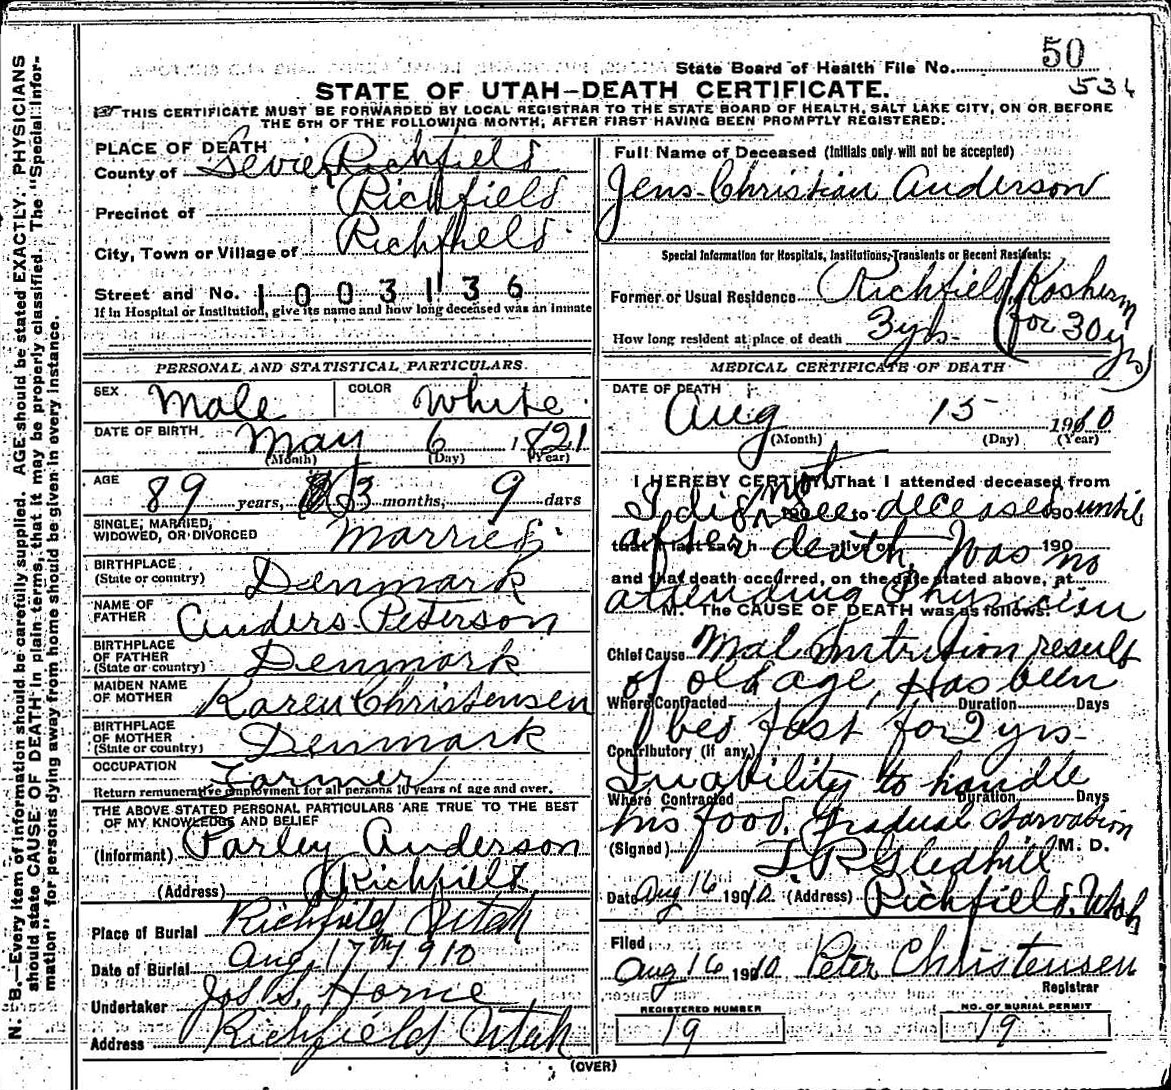 State Board of Health File No. 50
536
STATE OF UTAH—DEATH CERTIFICATE.
THIS CERTIFICATE MUST BE FORWARDED BY LOCAL REGISTRAR TO THE STATE BOARD OF HEALTH, SALT LAKE CITY, ON OR BEFORE
THE 5TH OF THE FOLLOWING MONTH, AFTER FIRST HAVING BEEN PROMPTLY REGISTERED.
N. B.—Every item of information should be carefully supplied. AGE should be stated EXACTLY. PHYSICIANS
should state CAUSE OF DEATH in plain terms, that it may be properly classified. The "Special Infor-
mation" for persons dying away from home should be given in every instance.
PLACE OF DEATH
County of Sevier Richfield
Precinct of Richfield
City, Town or Village of Richfield
Street and No. 1003136
If in Hospital or Institution, give its name and how long deceased was an inmate
PERSONAL AND STATISTICAL PARTICULARS
SEX Male COLOR White
DATE OF BIRTH May 6 1821
(Month) (Day) (Year)
AGE 89 years, 3 months, 9 days
SINGLE, MARRIED,
WIDOWED, OR DIVORCED Married
BIRTHPLACE
(State or country) Denmark
NAME OF
FATHER Anders Peterson
BIRTHPLACE
OF FATHER
(State or country) Denmark
MAIDEN NAME
OF MOTHER Karen Christensen
BIRTHPLACE
OF MOTHER
(State or country) Denmark
OCCUPATION Farmer
Return remunerative employment for all persons 10 years of age and over.
THE ABOVE STATED PERSONAL PARTICULARS ARE TRUE TO THE BEST
OF MY KNOWLEDGE AND BELIEF
(Informant) Parley Anderson
(Address) Richfield
Place of Burial Richfield Utah
Date of Burial Aug. 17th 1910
Undertaker Jos S. Horne
Address Richfield Utah
Full Name of Deceased (Initials only will not be accepted)
Jens Christian Anderson
Special Information for Hospitals, Institutions, Transients or Recent Residents:
Former or Usual Residence Richfield (Kosherm
How long resident at place of death 3 yrs. for 30 yrs)
MEDICAL CERTIFICATE OF DEATH
DATE OF DEATH
Aug 15 1910
(Month) (Day) (Year)
I HEREBY CERTIFY, That I attended deceased from
I did not see deceased until
after death, Was no
and that death occurred, on the date stated above, at
attending Physician
M. The CAUSE OF DEATH was as follows:
Chief Cause Mal nutrition result
of old age, Has been
Where Contracted Duration Days
bed fast for 2 yrs-
Contributory (if any)
Inability to handle
Where Contracted Duration Days
his food. Gradual starvation
(Signed) T. R. Gledhill M. D.
Date Aug 16 1910 (Address) Richfield, Utah
Filed
Aug 16 1910 Peter Christensen
Registrar
REGISTERED NUMBER NO. OF BURIAL PERMIT
19 19
(OVER)